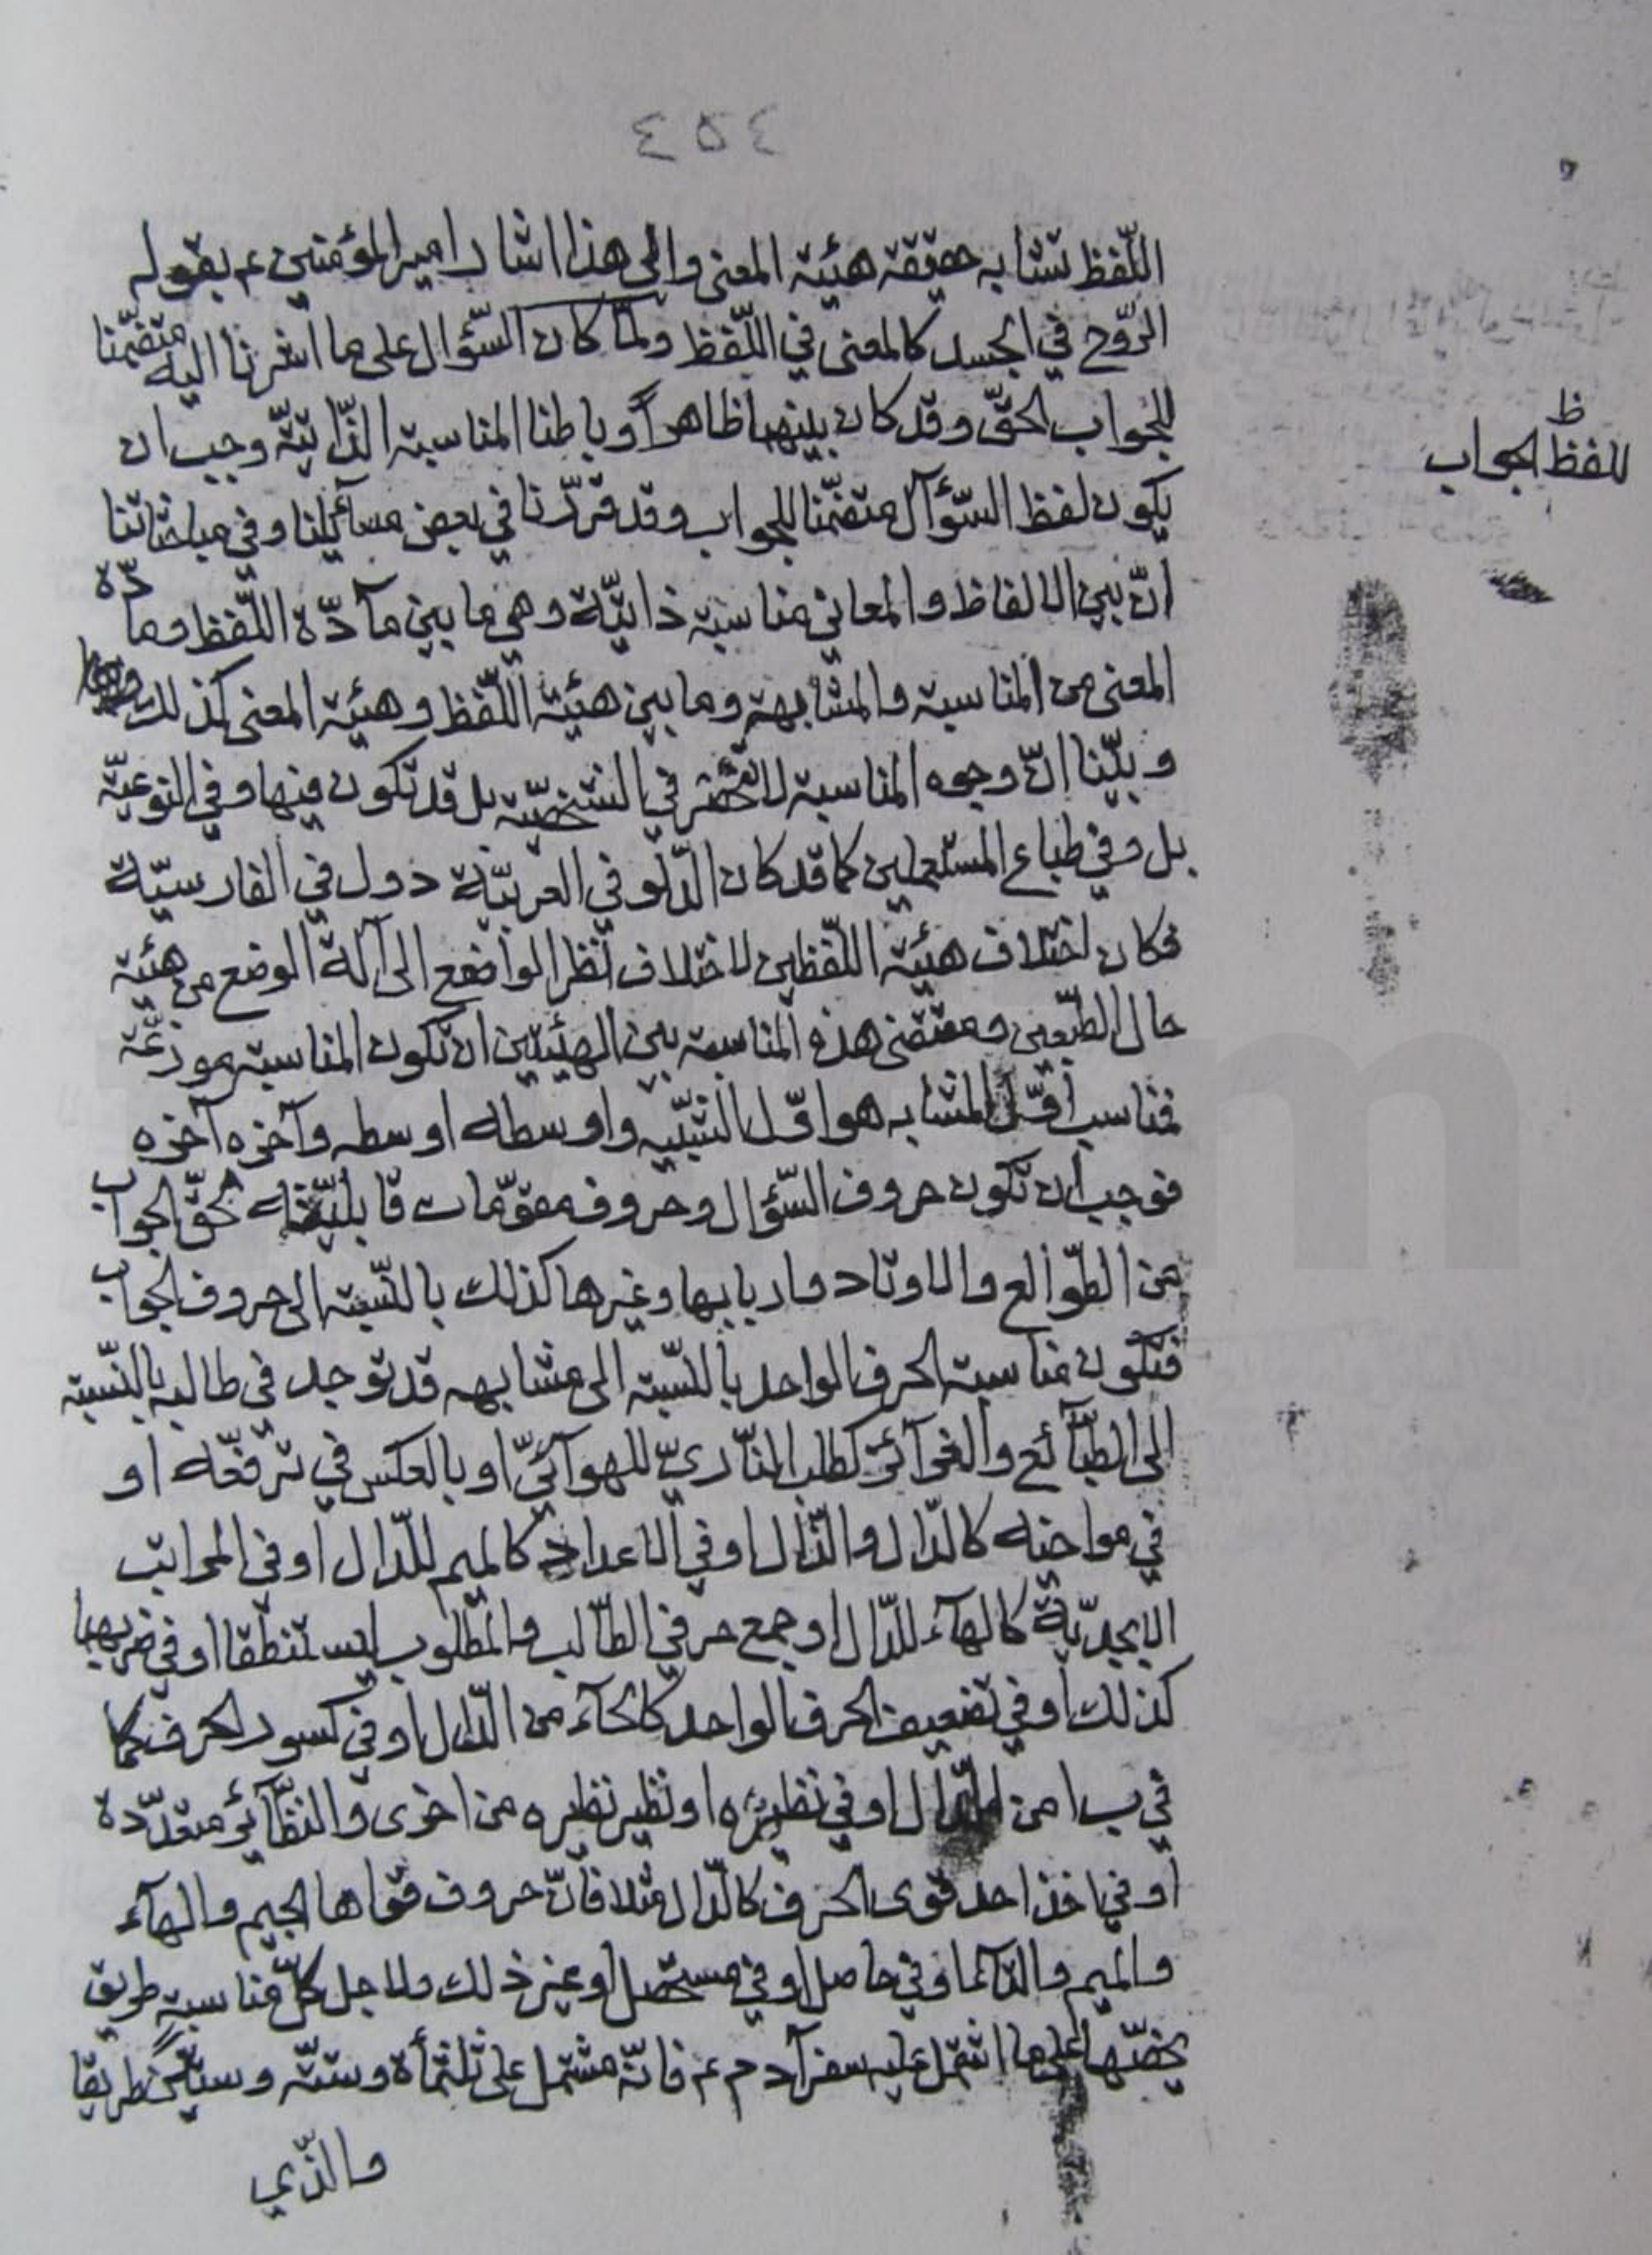 ٤٥٤
اللّفظ تشابه حقيقة هيئة المعنى والى هذا اشار امير المؤمنين ع بقوله
الرّوح في الجسد كالمعنى في اللّفظ ولمّا كان السّؤال على ما اشرنا اليه متضمّنا
للجواب الحقّ وقد كان بينهما ظاهراً وباطنا المناسبة الذّاتيّة وجب ان
ظ
للفظ الجواب
يكون لفظ السّؤال متضمّنا للجواب وقد قرّرنا في بعض مسآئلنا وفي مباحثاتنا
انّ بين الالفاظ والمعاني مناسبة ذاتيّة وهي ما بين مآدّة اللّفظ ومادّة
المعنى من المناسبة والمشابهة وما بين هيئة اللّفظ وهيئة المعنى كذلك
وبيّنا انّ وجوه المناسبة لا تنحصر في الشخصيّة بل قد تكون فيها وفي النوعيّة
بل وفي طباع المستعملين كما قد كان الدّلو في العربيّة دول في الفارسيّة
فكان اختلاف هيئة اللّفظين لاختلاف نظر الواضع الى آلة الوضع من هيئة
حال الطّبعين ومقتضى هذه المناسبة بين الهيئتين ان تكون المناسبة موزعّة
فمناسب اوّل المشابه هو اوّل الشبيه واوسطه اوسطه وآخره آخره
فوجب ان تكون حروف السّؤال وحروف مقوّمات قابليّته لحقّ الجواب
من الطّوالع والاوتاد واربابها وغيرها كذلك بالنّسبة الى حروف الجواب
فتكون مناسبة الحرف الواحد بالنّسبة الى مشابهه قد توجد في طالبه بالنّسبة
الى الطّبآئع والغرآئز كطلب النّاريّ للهوآئيّ او بالعكس في ترفّعه او
في مواخيه كالدّال والذّال او في الاعداد كالميم للدّال او في المراتب
الابجديّة كالهآء للدّال او جمع حرفي الطّالب والمطلوب ليستنطقا او في ضربهما
كذلك او في تضعيف الحرف الواحد كالحآء من الدّال او في كسور الحرف كما
في ب ا من الدّال او في نظيره او نظير نظيره من اخرى والنظّآئر متعدّدة
او في اخذ احد قوى الحرف كالدّال مثلا فانّ حروف قواها الجيم والهآء
والميم والتآء او في حاصل او في مستحصل او غير ذلك ولاجل كلّ مناسبة طريق
يخصّها على ما اشتمل عليه سفر آدم ع فانّه مشتمل على ثلثمأة وستّة وستّين طريقا
والذّي